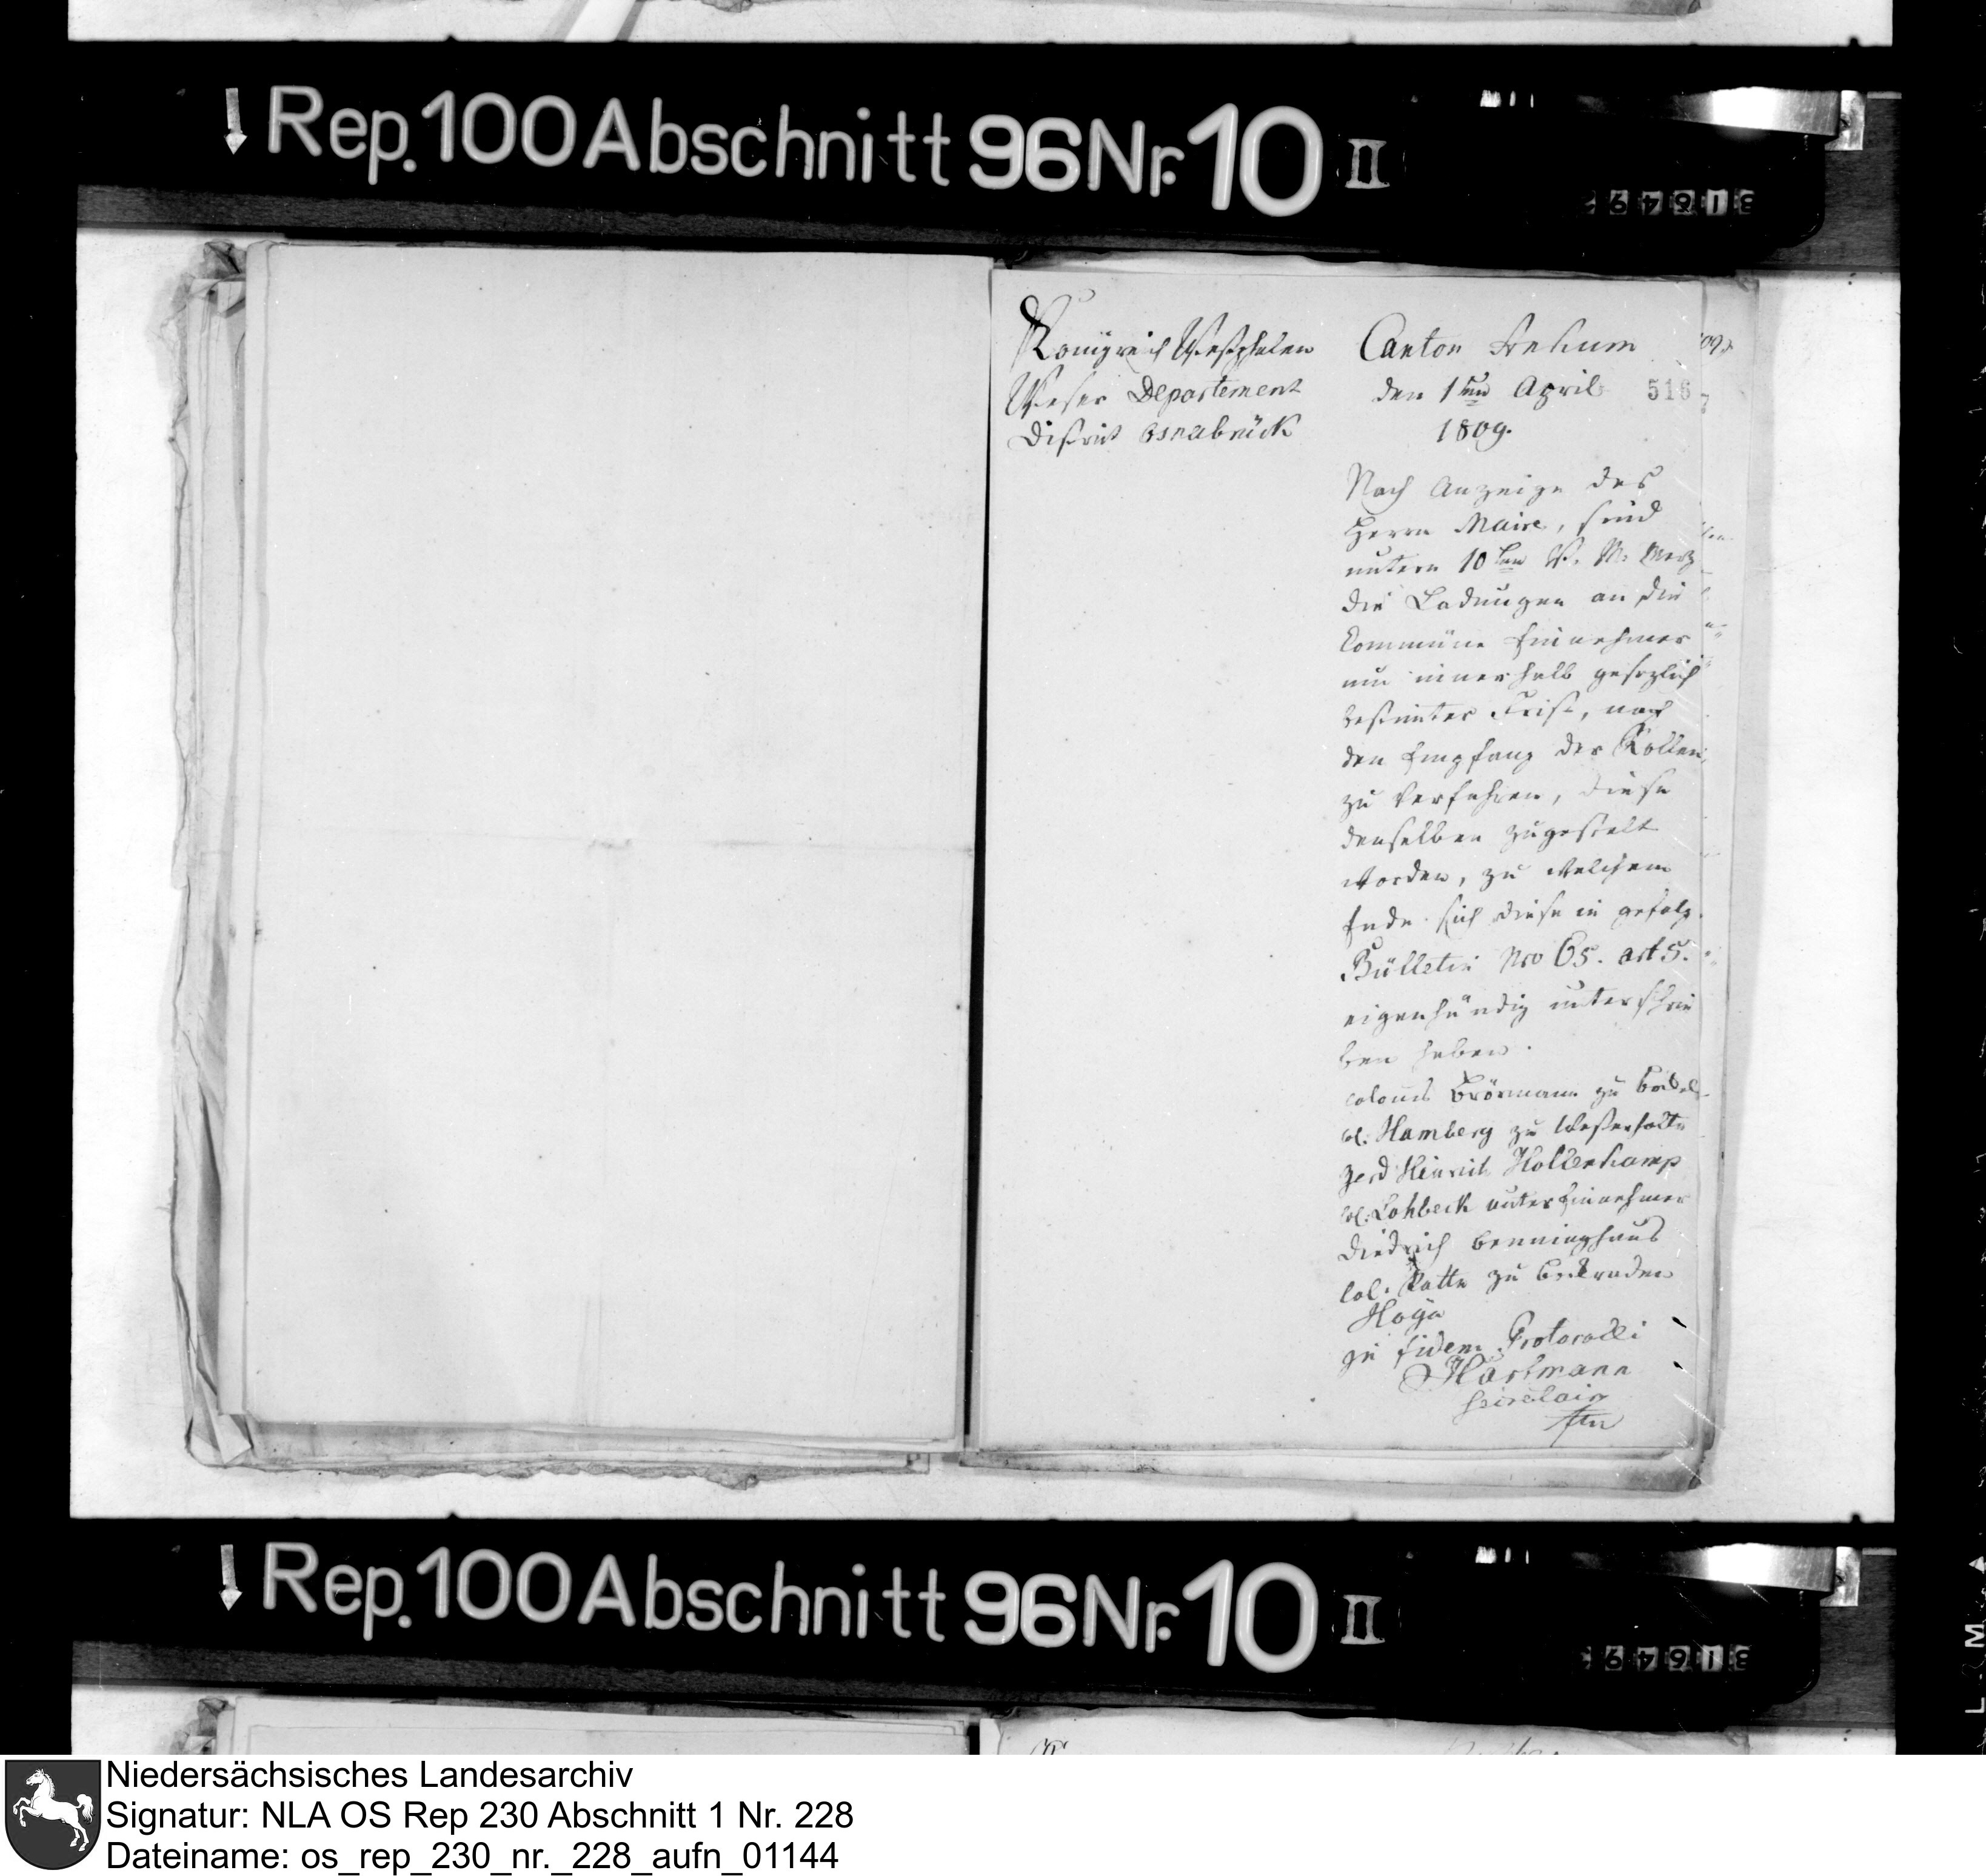 Rep. 100 Abschnitt 96 Nr. 10 II
Königreich Westphalen
Weser Departement
District Osnabrück
Canton Ankum
den 1ten April 516
1809.
Nach Anzeige des
Herrn Maire, sind
untern 10ten V. M. Merz
die Ladungen an die
Commüne Einnehmer
um innerhalb gesezlich
bestimter Frist, nach
den Empfang der Rollen
zu verfahren, diese
denselben zugestelt
worden, zu welchem
Ende sich diese in gefolg
Bülletin Nro 65. art 5.
eigenhändig unterschrie
ben haben.
Colonus Brörmann zu
Col. Hamberg zu Westerholte
Gerd Hinrich Hollenkamp
Col. Lohbeck unter Einnehmer
Diedrich Benninghaus
Col. Vatte zu
Hoya
in fidem Protocolli
Hartmann
Secretair
Rep. 100 Abschnitt 96 Nr. 10 II
Niedersächsisches Landesarchiv
Signatur: NLA OS Rep 230 Abschnitt 1 Nr. 228
Dateiname: os_rep_230_nr._228_aufn_01144